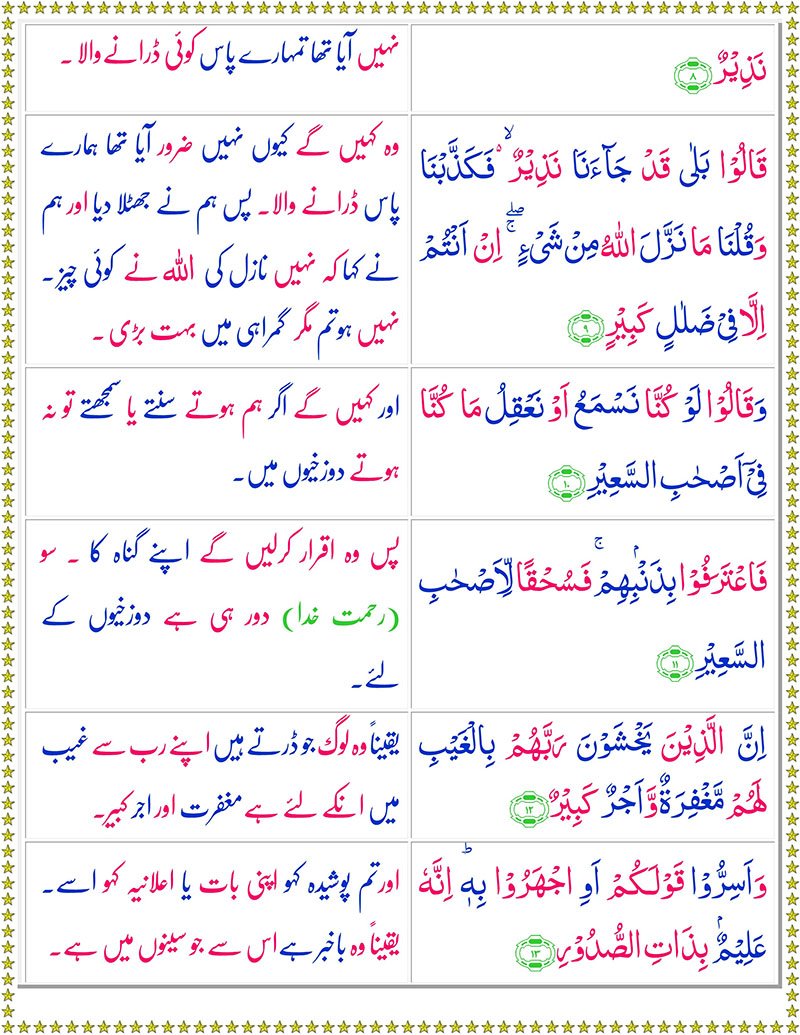 نَذِيْرٌ ۸
نہیں آیا تھا تمہارے پاس کوئی ڈرانے والا ۔
قَالُوْا بَلٰى قَدْ جَآءَنَا نَذِيْرٌ ۙ۬ فَكَذَّبْنَا
وَقُلْنَا مَا نَزَّلَ اللّٰهُ مِنْ شَىْءٍ ۖۚ اِنْ اَنْتُمْ
اِلَّا فِىْ ضَلٰلٍ كَبِيْرٍ ۹
وہ کہیں گے کیوں نہیں ضرور آیا تھا ہمارے
پاس ڈرانے والا۔ پس ہم نے جھٹلا دیا اور ہم
نے کہا کہ نہیں نازل کی اللہ نے کوئی چیز۔
نہیں ہو تم مگر گمراہی میں بہت بڑی ۔
وَقَالُوْا لَوْ كُنَّا نَسْمَعُ اَوْ نَعْقِلُ مَا كُنَّا
فِىْۤ اَصْحٰبِ السَّعِيْرِ ۱۰
اور کہیں گے اگر ہم ہوتے سنتے یا سمجھتے تو نہ
ہوتے دوزخیوں میں۔
فَاعْتَرَفُوْا بِذَنْۢبِهِمْ ۚ فَسُحْقًا لِّاَصْحٰبِ
السَّعِيْرِ ۱۱
پس وہ اقرار کرلیں گے اپنے گناہ کا ۔ سو
(رحمت خدا) دور ہی ہے دوزخیوں کے
لئے۔
اِنَّ الَّذِيْنَ يَخْشَوْنَ رَبَّهُمْ بِالْغَيْبِ
لَهُمْ مَّغْفِرَةٌ وَّاَجْرٌ كَبِيْرٌ ۱۲
یقیناً وہ لوگ جو ڈرتے ہیں اپنے رب سے غیب
میں انکے لئے ہے مغفرت اور اجر کبیر۔
وَاَسِرُّوْا قَوْلَكُمْ اَوِ اجْهَرُوْا بِهٖ ؕ اِنَّهٗ
عَلِيْمٌۢ بِذَاتِ الصُّدُوْرِ ۱۳
اور تم پوشیدہ کہو اپنی بات یا اعلانیہ کہو اسے۔
یقیناً وہ باخبر ہے اس سے جو سینوں میں ہے۔